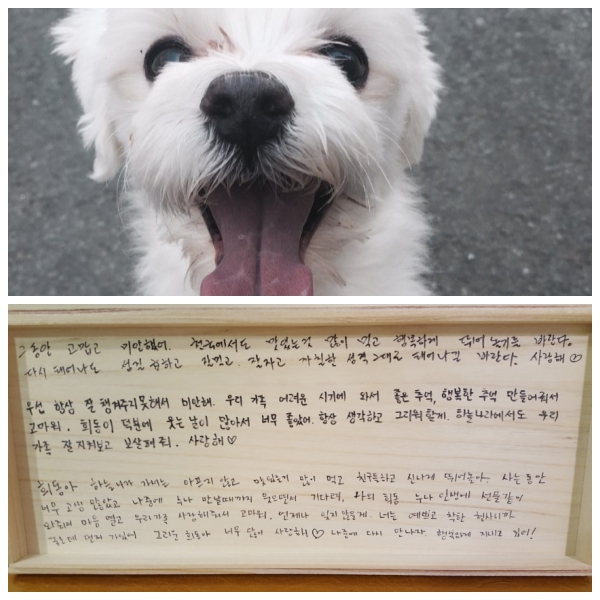 그동안 고맙고 미안했어. 천국에서도 맛있는것 많이 먹고 행복하게 뛰어놀기를 바란다.
다시 태어나도 성질 급하고 잘먹고 잘자고 까칠한 성격 그대로 태어나길 바란다. 사랑해♡
우선 항상 잘 챙겨주지못해서 미안해. 우리 가족 어려운 시기에 와서 좋은 추억, 행복한 추억 만들어줘서
고마워. 희동이 덕분에 웃는 날이 많아서 너무 좋았어. 항상 생각하고 그리워할게. 하늘나라에서도 우리
가족 잘 지켜보고 보살펴줘. 사랑해♡
희동아 하늘나라 가서는 아프지 않고 맛있는거 많이 먹고 친구들하고 신나게 뛰어놀아. 사는 동안
너무 고생 많았고 나중에 누나 만날때까지 기다려. 우리 희동 누나 인생에 선물같이
와줘서 마음 열고 우리가족 사랑해줘서 고마워. 언제나 잊지 않을게. 너는 예쁘고 착한 천사니까
먼저 가있어 그리운 희동아 너무 많이 사랑해♡ 나중에 다시 만나자. 행복하게 지내고 있어!